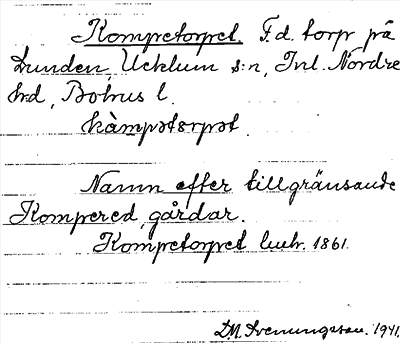 Kompetorpet. F.d. torp på
Lunden, Ucklum s:n, Inl. Nordre
hrd, Bohus l.
kàmpətɔrpət.
Namn efter tillgränsande
Kompered, gårdar.
Kompetorpet husfr. 1861.
D.N. Svenungsson. 1941.